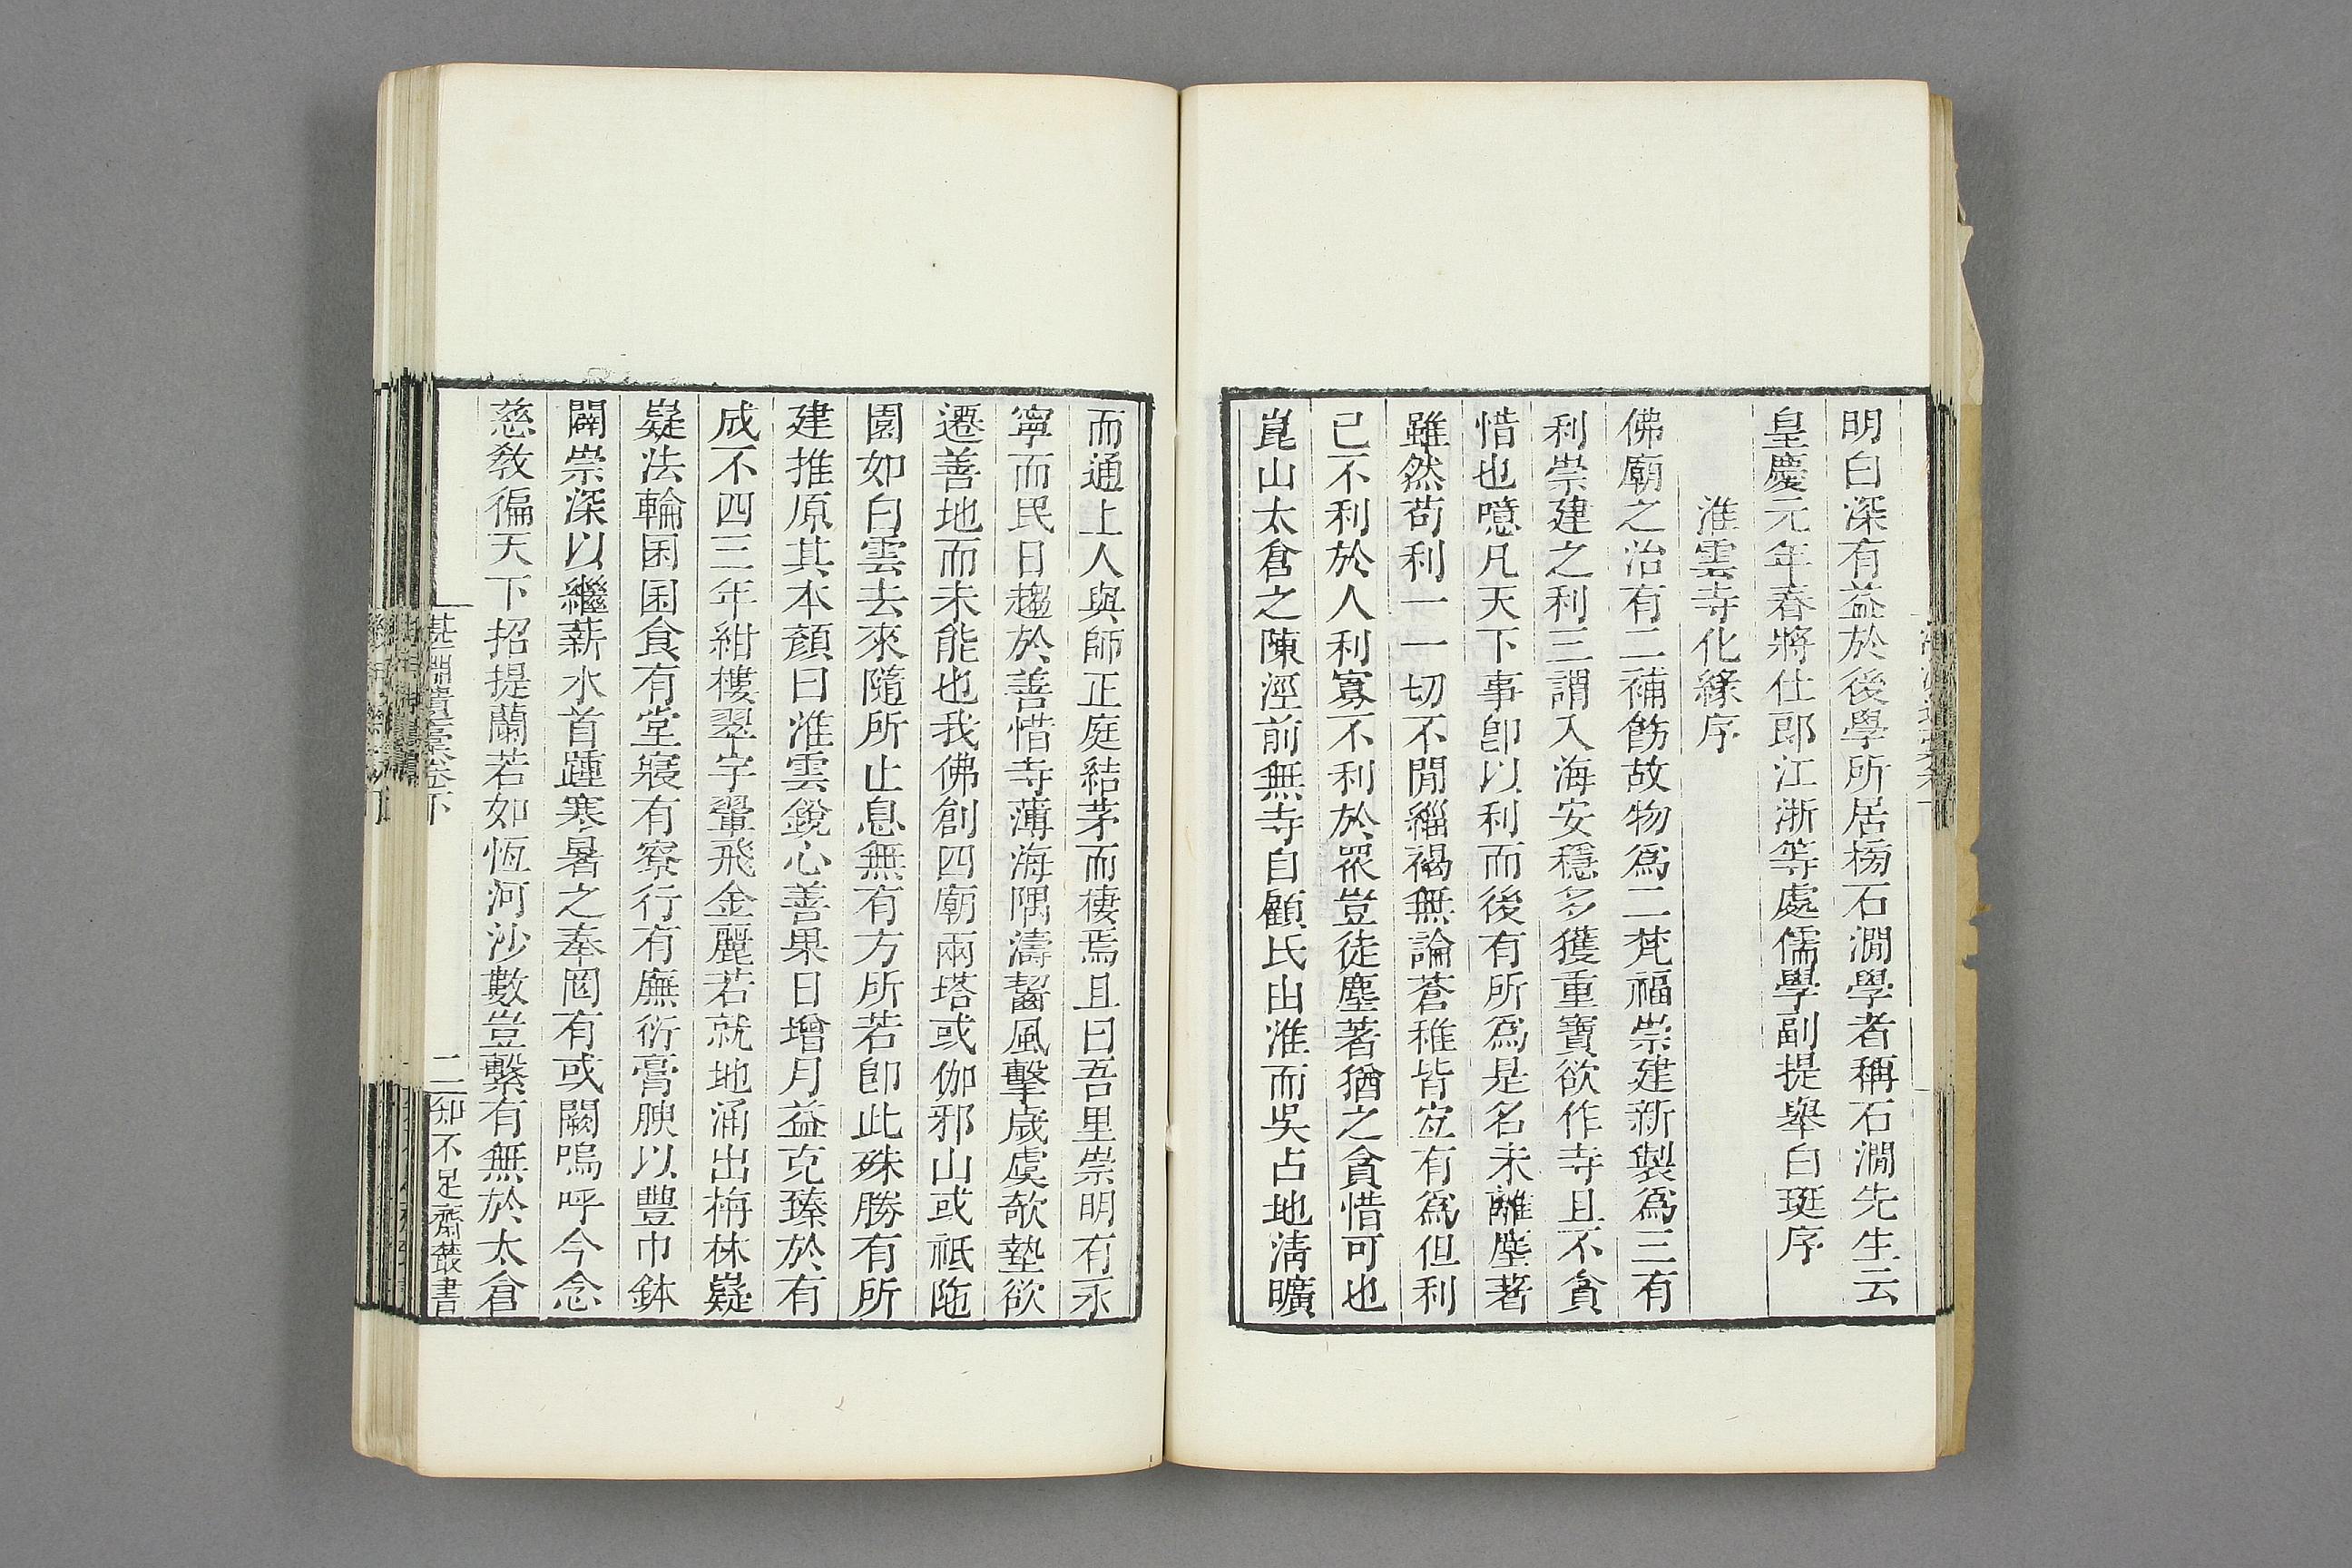 明白深有益於後學所居榜石澗學者稱石澗先生云
皇慶元年春將仕郎江浙等處儒學副提舉白珽序
淮雲寺化緣序
佛廟之治有二補飭故物爲二梵福崇建新製爲三有
利崇建之利三謂入海安穩多獲重寶欲作寺且不貪
惜也噫凡天下事卽以利而後有所爲是名未離塵著
雖然苟利一一切不閒緇褐無論蒼稚皆宜有爲但利
己不利於人利寡不利於衆豈徒塵著猶之貪惜可也
崑山太倉之陳涇前無寺自顧氏由淮而吳占地淸曠
而通上人與師正庭結茅而棲焉且曰吾里崇明有永
寧而民日趨於善惜寺薄海隅濤齧風擊歲虞欹墊欲
遷善地而未能也我佛創四廟兩塔或伽邪山或祗陁
園如白雲去來隨所止息無有方所若卽此殊勝有所
建推原其本顏曰淮雲銳心善果日增月益克臻於有
成不四三年紺樓翠宇翬飛金麗若就地涌出栴林嶷
嶷法輪囷囷食有堂寢有寮行有廡衍膏腴以豐巾鉢
闢崇深以繼薪水首踵寒暑之奉罔有或闕嗚呼今念
慈敎徧天下招提蘭若如恆河沙數豈繫有無於太倉
湛淵遺稾卷下
二
知不足齋叢書